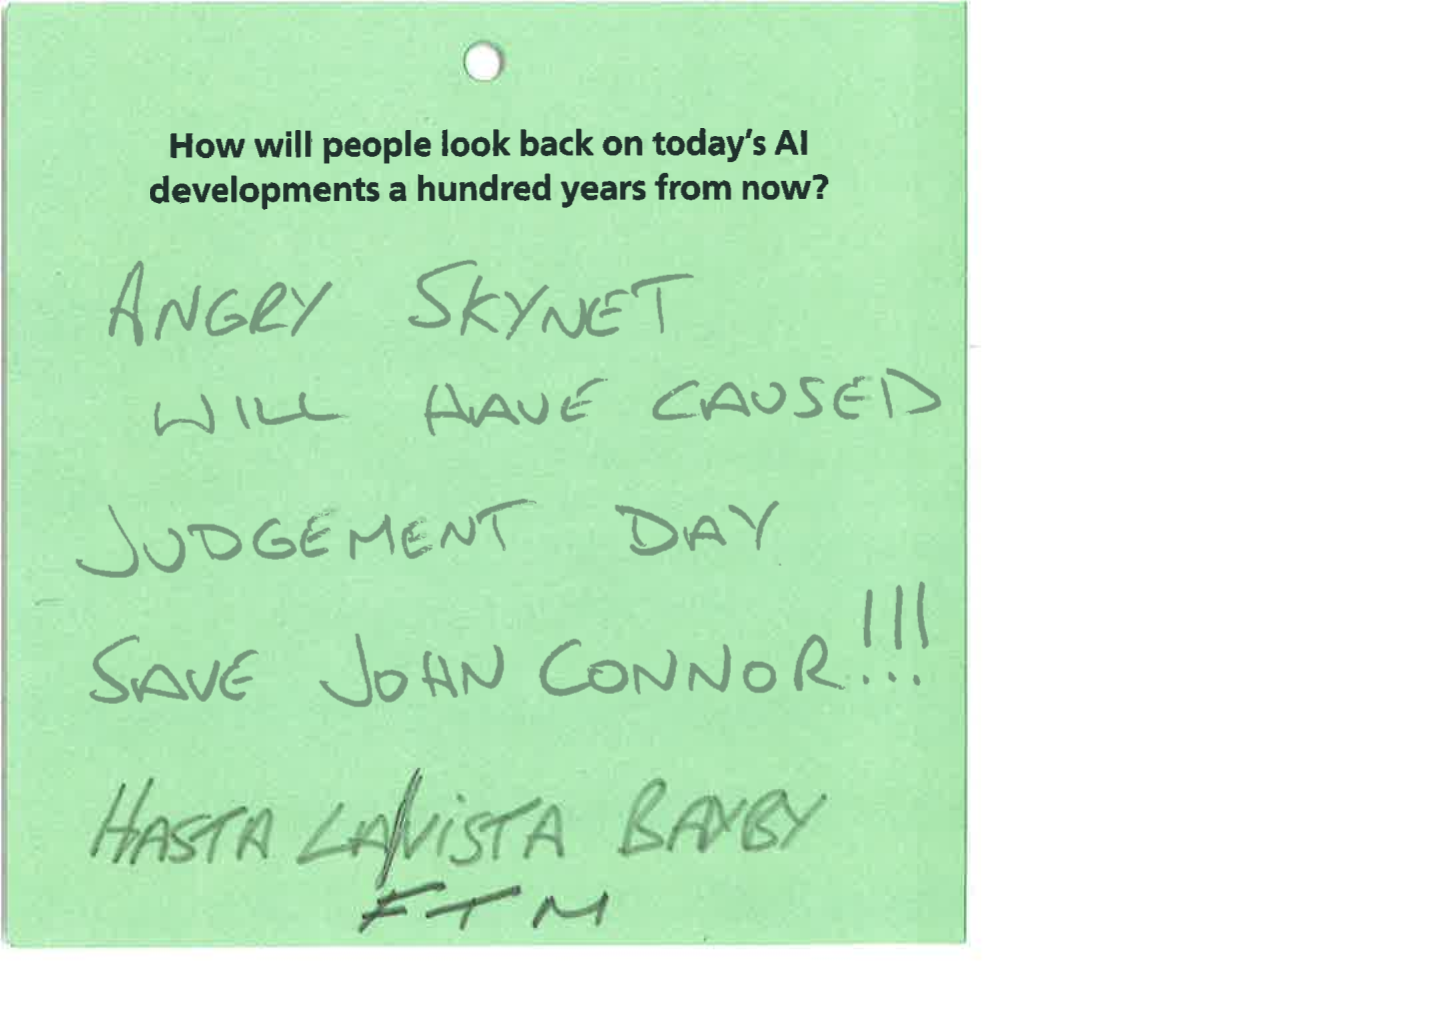 How will people look back on today's AI
developments a hundred years from now?
ANGRY SKYNET
WILL HAVE CAUSED
JUDGEMENT DAY
SAVE JOHN CONNOR!!!
HASTA LA/VISTA BAYBY
FTM